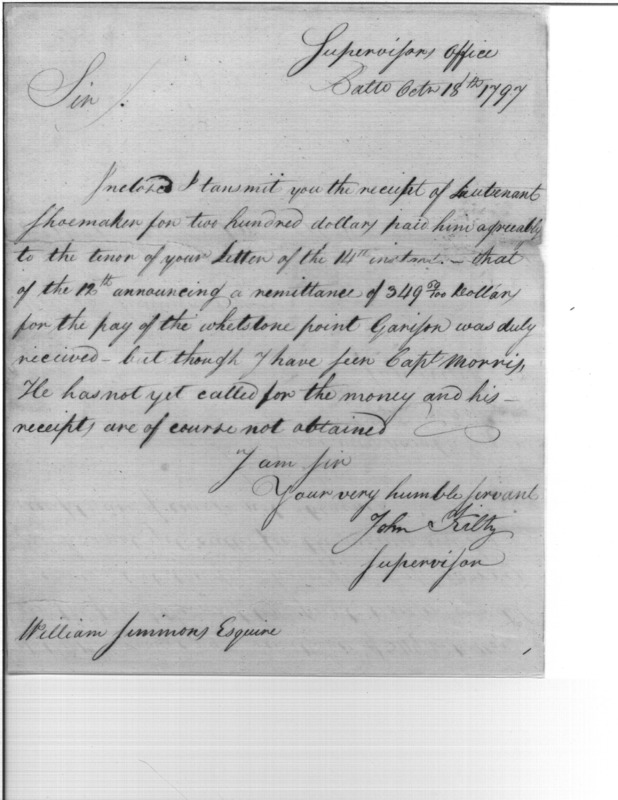 Supervisors Office
Balto Octr 18th 1797
Sir /.
Inclosed I tansmit you the receipt of Lieutenant
Shoemaker for two hundred dollars paid him agreeably
to the tenor of your Letter of the 14th instant. – that
of the 12th announcing a remittance of 349 /100 Dollars
for the pay of the whetstone point Garison was duly
received – but though I have seen Capt Morris,
He has not yet called for the money and his –
receipts are of course not obtained
I am sir
Your very humble servant
John Kilty
Supervisor
William Simmons Esquire